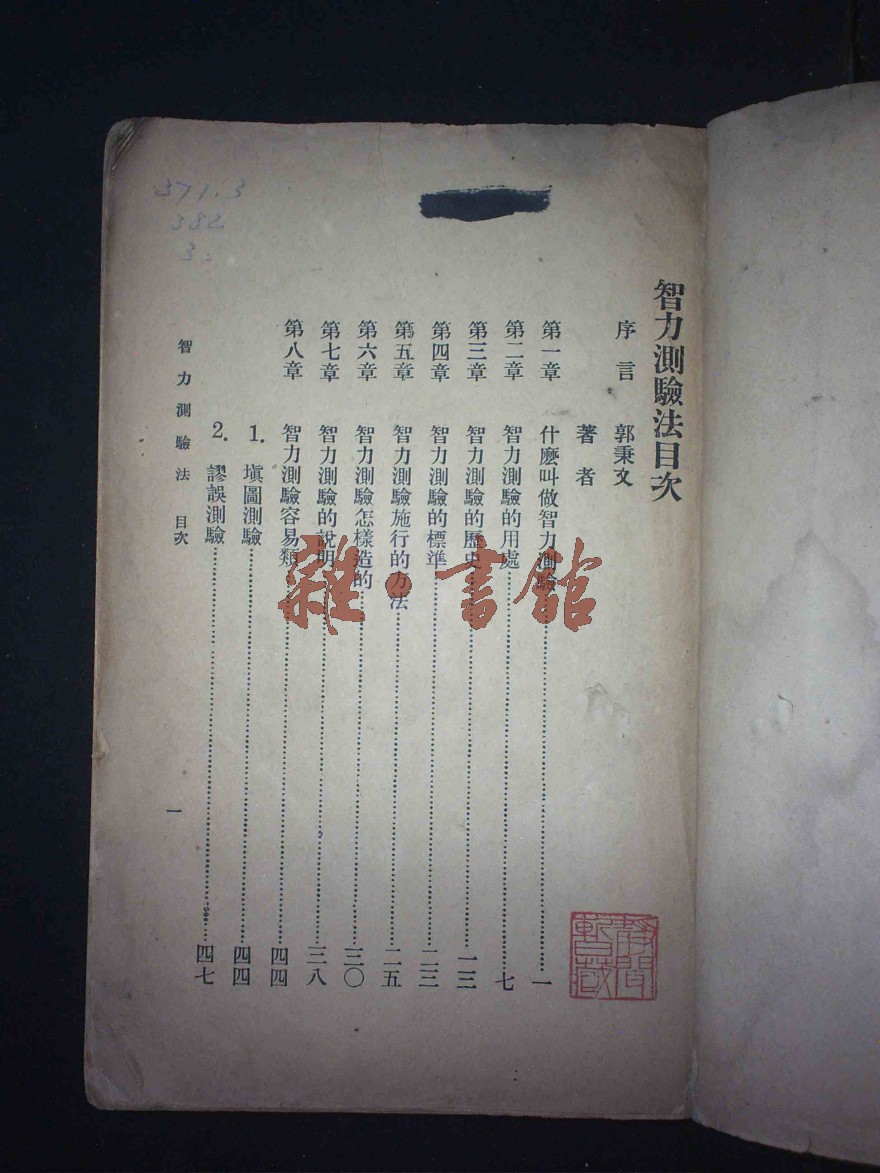 智力測驗法目次
序言 郭秉文
著者
第一章 什麽叫做智力測驗……一
第二章 智力測驗的用處……七
第三章 智力測驗的歷史……一三
第四章 智力測驗的標準……二三
第五章 智力測驗施行的方法……二五
第六章 智力測驗怎樣造的……三〇
第七章 智力測驗的說明……三八
第八章 智力測驗容易類……四四
1. 塡圖測驗……四四
2. 謬誤測驗……四七
智力測驗法 目次
一
371.3
382
3
雜·書館